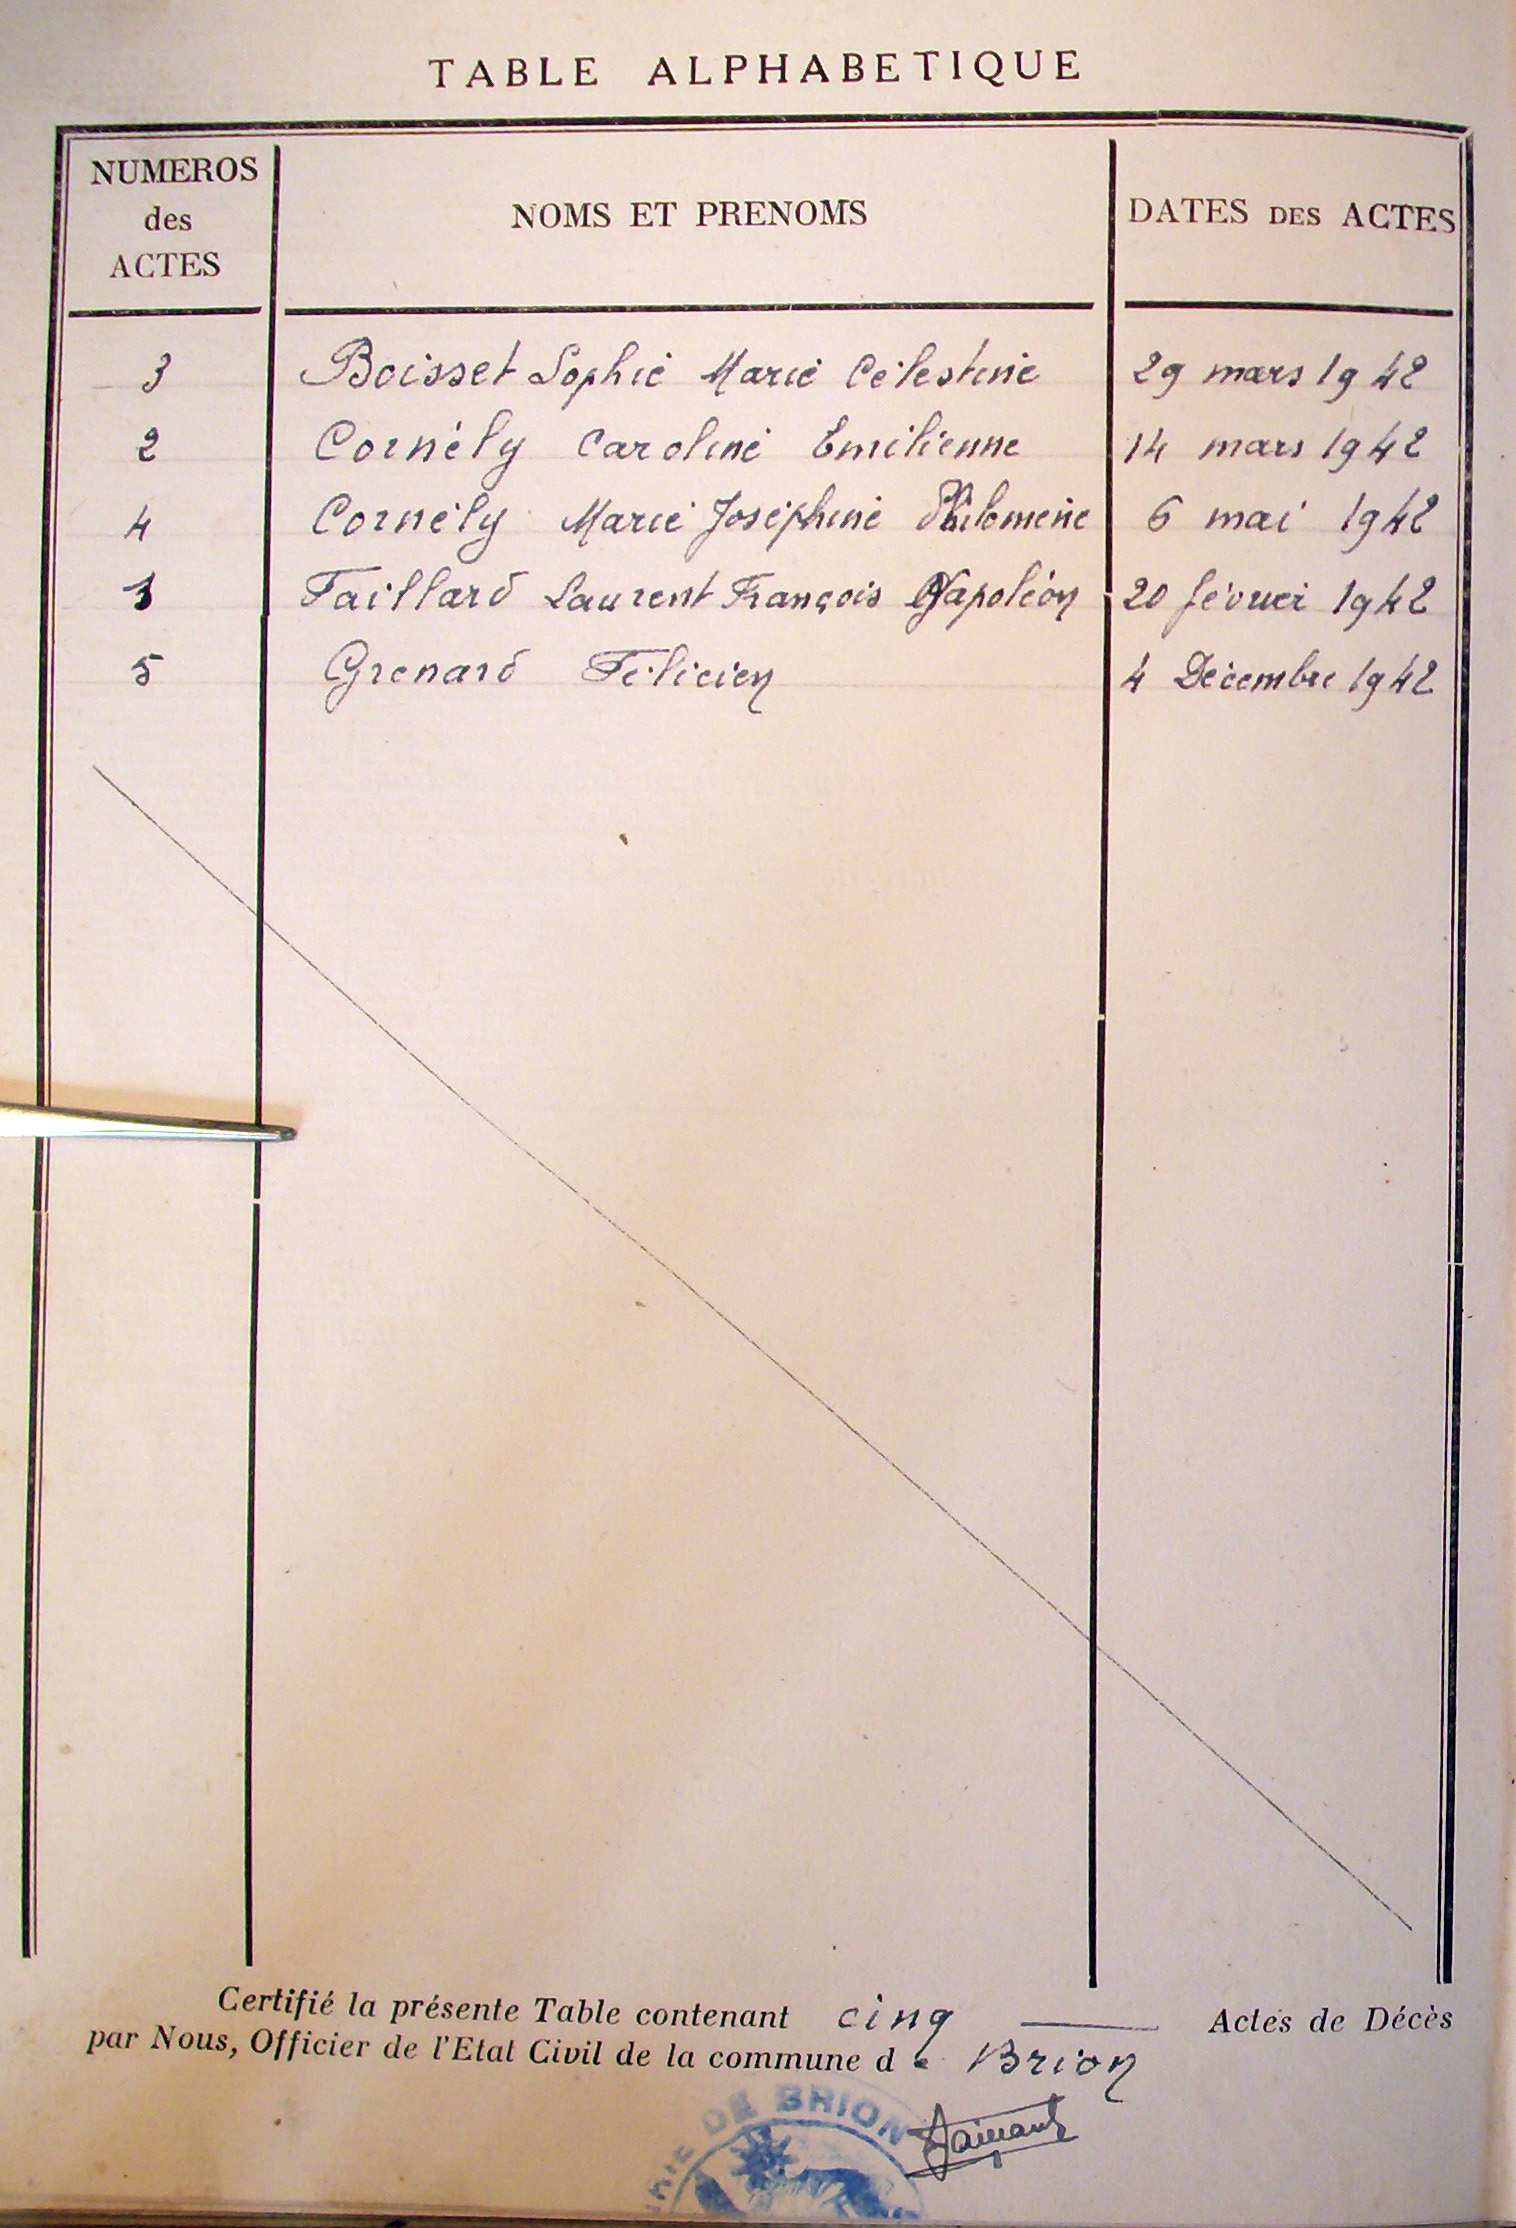 TABLE ALPHABETIQUE
NUMEROS des ACTES NOMS ET PRENOMS DATES DES ACTES
3 Boisset Sophie Marie Célestine 29 mars 1942
2 Cornély Caroline Emilienne 14 mars 1942
4 Cornély Marie Joséphine Philomène 6 mai 1942
1 Faillard Laurent François Napoléon 20 février 1942
5 Grenard Félicien 4 Décembre 1942
Certifié la présente Table contenant cinq Actes de Décès
par Nous, Officier de l'Etat Civil de la commune de Brion
DE BRION